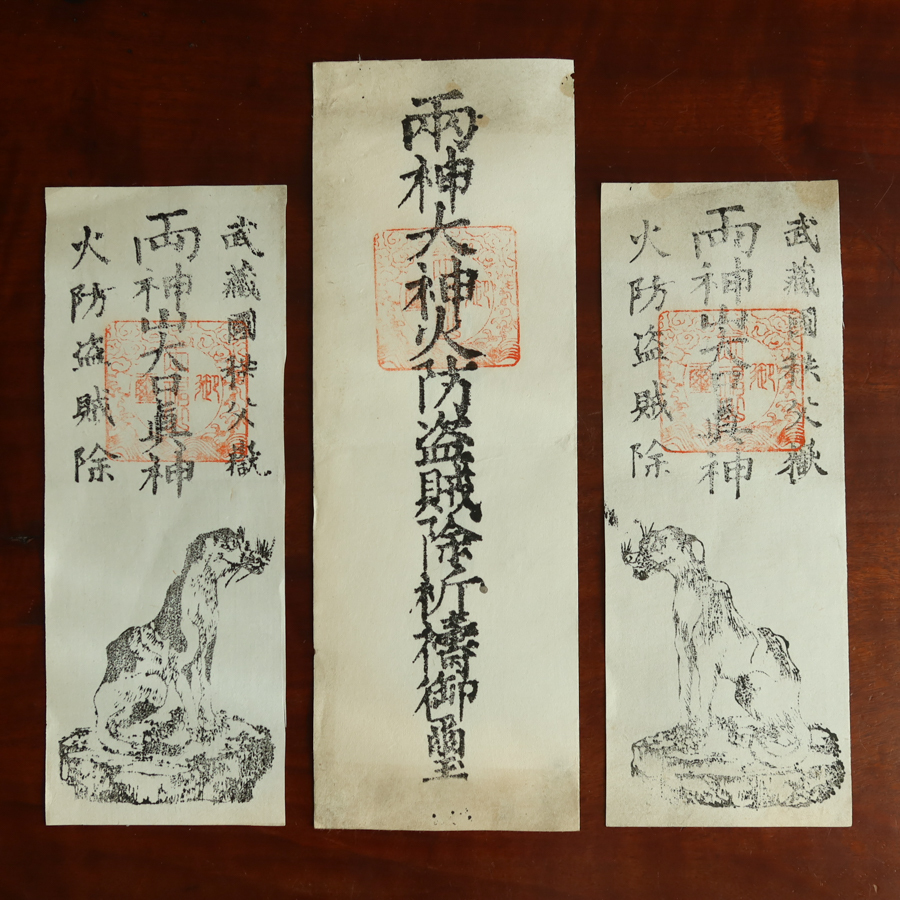 武藏國秩父嶽
両神山大口眞神
火防盗賊除
兩神大神火防盗賊除祈禱御璽
武藏國秩父嶽
両神山大口眞神
火防盗賊除